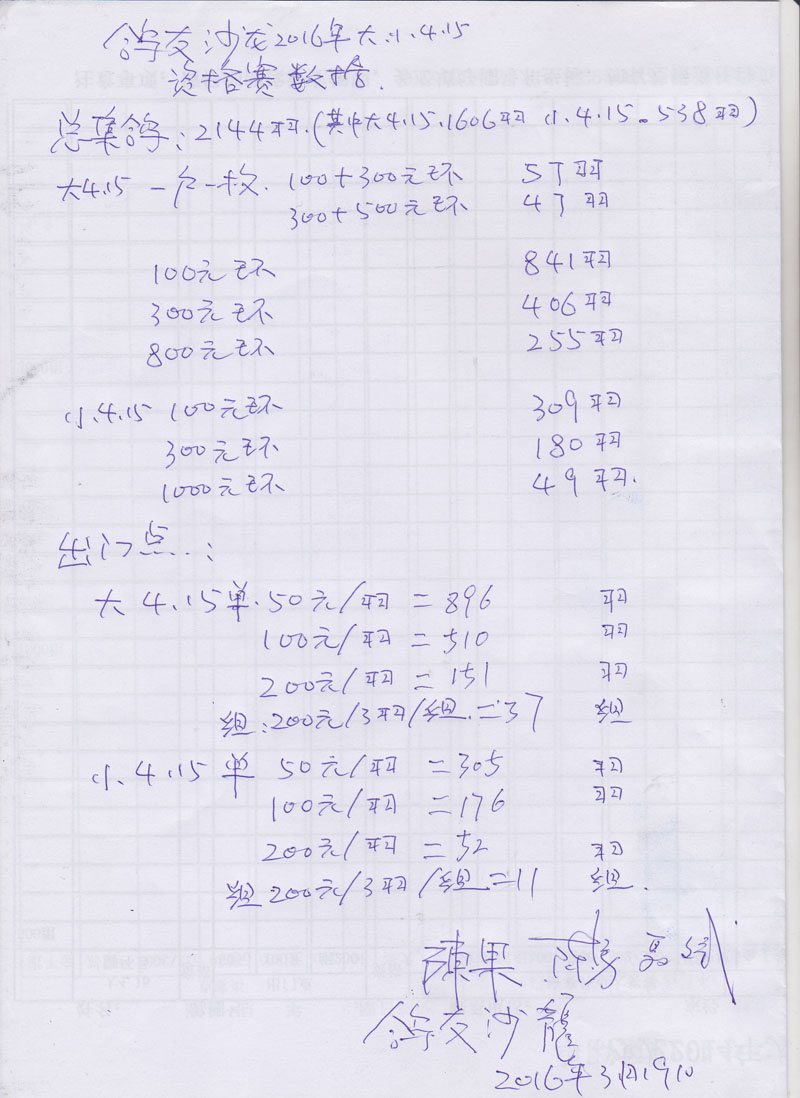 鸽友沙龙2016年大.小.4.15
资格赛数据.
总集鸽:2144羽.(其中大4.15.1606羽 小.4.15.538羽)
大4.15 一户一枚. 100+300元环 57羽
300+500元环 47羽
100元环 841羽
300元环 406羽
800元环 255羽
小.4.15 100元环 309羽
300元环 180羽
1000元环 49羽.
出门点..:
大4.15单.50元/羽=896 羽
100元/羽=510 羽
200元/羽=151 羽
组:200元/3羽/组.=37 组
小.4.15单 50元/羽=305 羽
100元/羽=176 羽
200元/羽=52 羽
组200元/3羽/组.=11 组.
陳果
鸽友沙龍
2016年3月19日